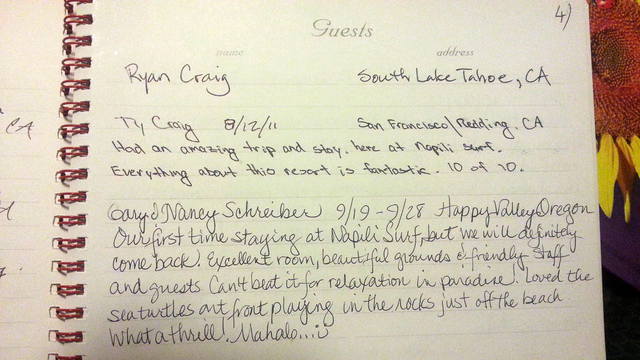 4)
Guests
name address
Ryan Craig South Lake Tahoe, CA
Ty Craig 8/12/11 San Francisco/Redding, CA
Had an amazing trip and stay. here at Napili Surf.
Everything about this resort is fantastic. 10 of 10.
CA
Gary & Nancy Schreiber 9/19 - 9/28 Happy Valley, Oregon
Our first time staying at Napili Surf, but we will definitely
come back. Excellent room, beautiful grounds & friendly staff
and guests Can't beat it for relaxation in paradise! Loved the
sea turtles out front playing in the rocks just off the beach
What a thrill! Mahalo...